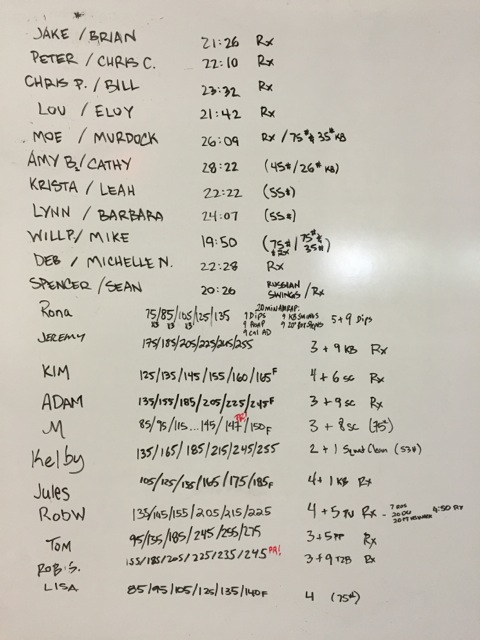 JAKE / BRIAN 21:26 Rx
PETER / CHRIS C. 22:10 Rx
CHRIS P. / BILL 23:32 Rx
LOU / ELOY 21:42 Rx
MOE / MURDOCK 26:09 Rx / 75# & 35# KB
AMY B. / CATHY 28:22 (45#/26# KB)
KRISTA / LEAH 22:22 (55#)
LYNN / BARBARA 24:07 (55#)
WILL P. / MIKE 19:50 (75# / 75# 35#)
DEB / MICHELLE N. 22:28 Rx
SPENCER / SEAN 20:26 RUSSIAN SWINGS / Rx
Rona 75/85/105/125/135 20 min AMRAP: 9 Dips 9 Cal AD 9 KB Swings 5+9 Dips
x3 x3 x3
JEREMY 175/185/205/225/245/255 3+9 KB Rx
KIM 125/135/145/155/160/165F 4+6 SC Rx
ADAM 135/155/185/205/225/245F 3+9 SC Rx
M 85/95/115...145/147/150F PR! 3+8 SC (75#)
Kelby 135/165/185/215/245/255 2+1 Squat Clean (53#)
Jules 105/125/135/165/175/185F 4+1 KB Rx
ROB W 135/145/155/205/215/225 4+5 Rx - 20 DU 4:50 Rx
TOM 95/135/185/245/255/275 3+5 PP Rx
ROB S. 155/185/205/225/235/245 PR! 3+9 T2B Rx
LISA 85/95/105/125/135/140F 4 (75#)